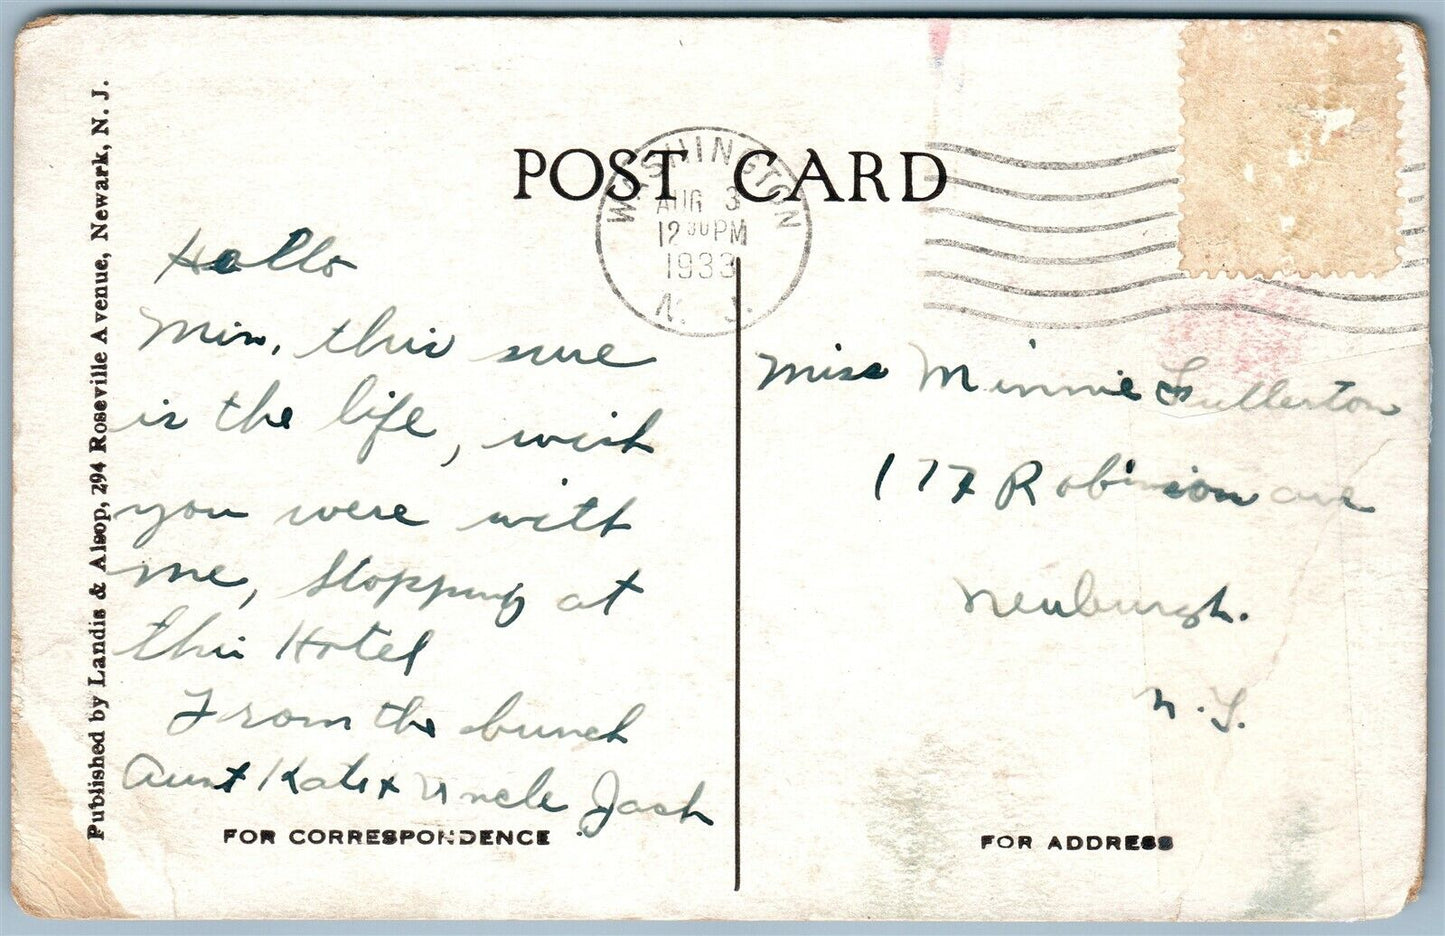 POST CARD
WASHINGTON
AUG 3
12 30 PM
1933
N. J.
Published by Landis & Alsop, 294 Roseville Avenue, Newark, N. J.
Hello
Min, this sure
is the life, wish
you were with
me, stopping at
this Hotel
From the bunch
Aunt Kate + Uncle Jack
FOR CORRESPONDENCE
Miss Minnie Fullerton
177 Robinson ave
Newburgh.
N.Y.
FOR ADDRESS